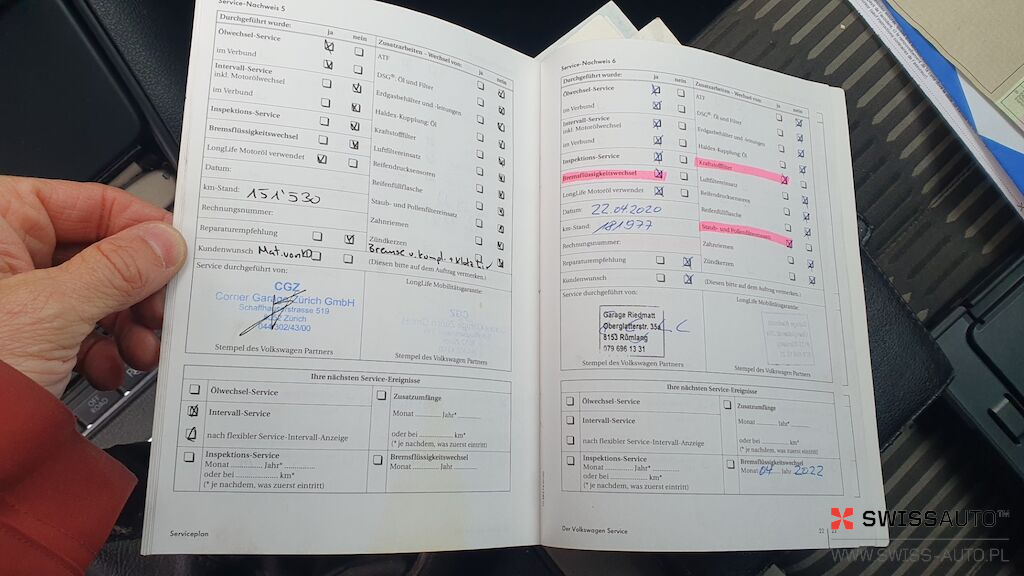 Service-Nachweis 5
Durchgeführt wurde: ja nein
Ölwechsel-Service
im Verbund
Intervall-Service
inkl. Motorölwechsel
im Verbund
Inspektions-Service
Bremsflüssigkeitswechsel
LongLife Motoröl verwendet
Datum:
km-Stand: 151'530
Rechnungsnummer:
Reparaturempfehlung
Kundenwunsch Mat. von KD
Zusatzarbeiten – Wechsel von: ja nein
ATF
DSG®: Öl und Filter
Erdgasbehälter und -leitungen
Haldex-Kupplung: Öl
Kraftstofffilter
Luftfiltereinsatz
Reifendrucksensoren
Reifenfüllflasche
Staub- und Pollenfiltereinsatz
Zahnriemen
Zündkerzen
Bremse v. kompl. + Klötze
(Diesen bitte auf dem Auftrag vermerken.)
Service durchgeführt von:
CGZ
Corner Garage Zürich GmbH
Schaffhauserstrasse 519
8052 Zürich
044/302/43/00
Stempel des Volkswagen Partners
LongLife Mobilitätsgarantie:
Stempel des Volkswagen Partners
Ihre nächsten Service-Ereignisse
Ölwechsel-Service
Intervall-Service
nach flexibler Service-Intervall-Anzeige
Inspektions-Service
Monat Jahr*
oder bei km*
(* je nachdem, was zuerst eintritt)
Zusatzumfänge
Monat Jahr*
oder bei km*
(* je nachdem, was zuerst eintritt)
Bremsflüssigkeitswechsel
Monat Jahr
Serviceplan
Service-Nachweis 6
Durchgeführt wurde: ja nein
Ölwechsel-Service
im Verbund
Intervall-Service
inkl. Motorölwechsel
im Verbund
Inspektions-Service
Bremsflüssigkeitswechsel
LongLife Motoröl verwendet
Datum: 22.04.2020
km-Stand: 181977
Rechnungsnummer:
Reparaturempfehlung
Kundenwunsch
Zusatzarbeiten – Wechsel von: ja nein
ATF
DSG®: Öl und Filter
Erdgasbehälter und -leitungen
Haldex-Kupplung: Öl
Kraftstofffilter
Luftfiltereinsatz
Reifendrucksensoren
Reifenfüllflasche
Staub- und Pollenfiltereinsatz
Zahnriemen
Zündkerzen
(Diesen bitte auf dem Auftrag vermerken.)
Service durchgeführt von:
Garage Riedmatt
Oberglatterstr. 35a
8153 Rümlang
079 696 13 31
Stempel des Volkswagen Partners
LongLife Mobilitätsgarantie:
Stempel des Volkswagen Partners
Ihre nächsten Service-Ereignisse
Ölwechsel-Service
Intervall-Service
nach flexibler Service-Intervall-Anzeige
Inspektions-Service
Monat Jahr*
oder bei km*
(* je nachdem, was zuerst eintritt)
Zusatzumfänge
Monat Jahr*
oder bei km*
(* je nachdem, was zuerst eintritt)
Bremsflüssigkeitswechsel
Monat 04 Jahr 2022
Der Volkswagen Service
OFF
ROAD
SWISSAUTO™
WWW.SWISS-AUTO.PL